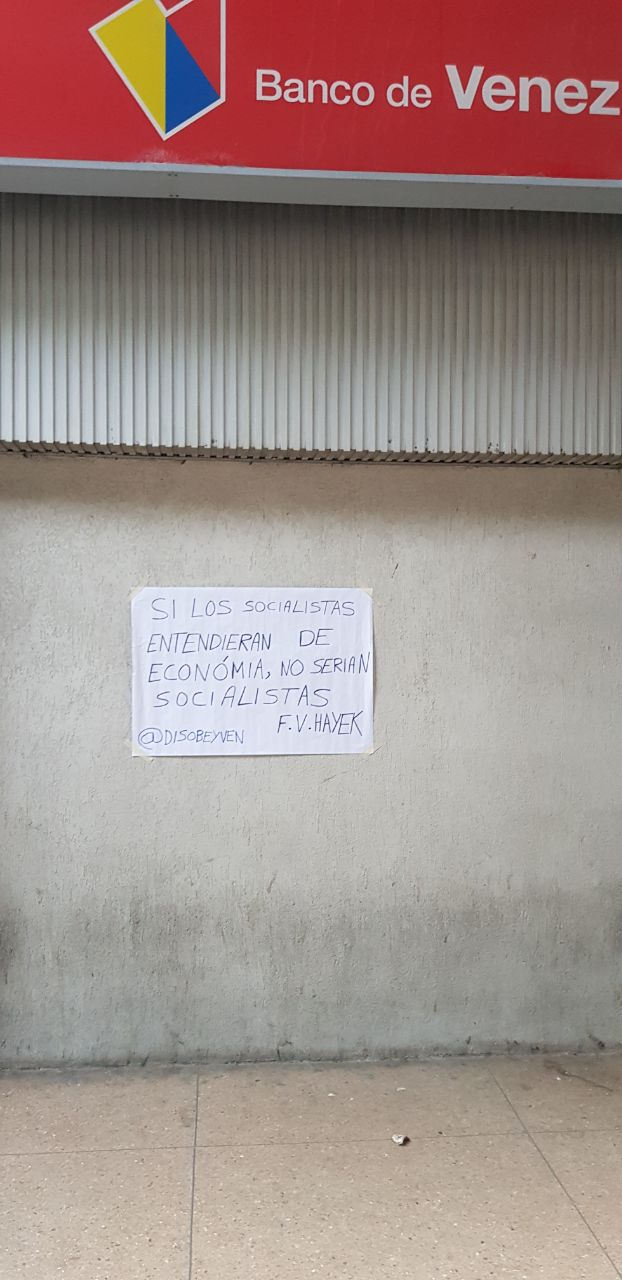 Banco de Venez
SI LOS SOCIALISTAS
ENTENDIERAN DE
ECONÓMIA, NO SERIAN
SOCIALISTAS
F.V. HAYEK
@DISOBEYVEN